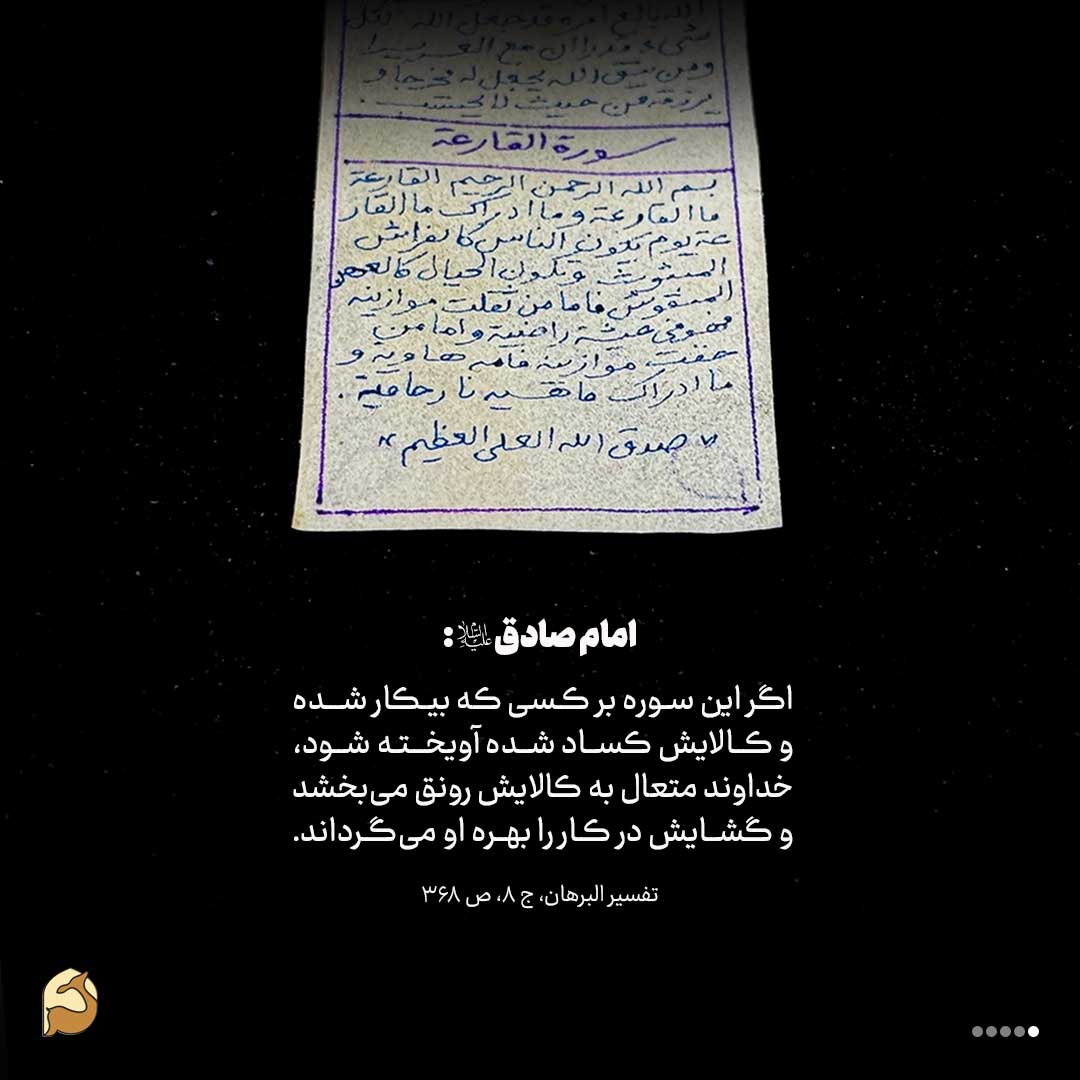 الله بالغ امره قد جعل الله لكل
شيء قدرا ان مع العسر يسرا
ومن يتق الله يجعل له مخرجا و
يرزقه من حيث لا يحتسب.
سورة القارعة
بسم الله الرحمن الرحيم القارعة
ما القارعة و ما ادراك ما القار
عة يوم يكون الناس كالفراش
المبثوث وتكون الجبال كالعهن
المنفوش فاما من ثقلت موازينه
فهو في عيشة راضية و اما من
خفت موازينه فامه هاوية و
ما ادراك ماهيه نار حامية.
" صدق الله العلي العظيم "
امام صادق علیه‌السلام:
اگر این سوره بر کسی که بیکار شده
و کالایش کساد شده آویخته شود،
خداوند متعال به کالایش رونق می‌بخشد
و گشایش در کار را بهره او می‌گرداند.
تفسیر البرهان، ج ۸، ص ۳۶۸